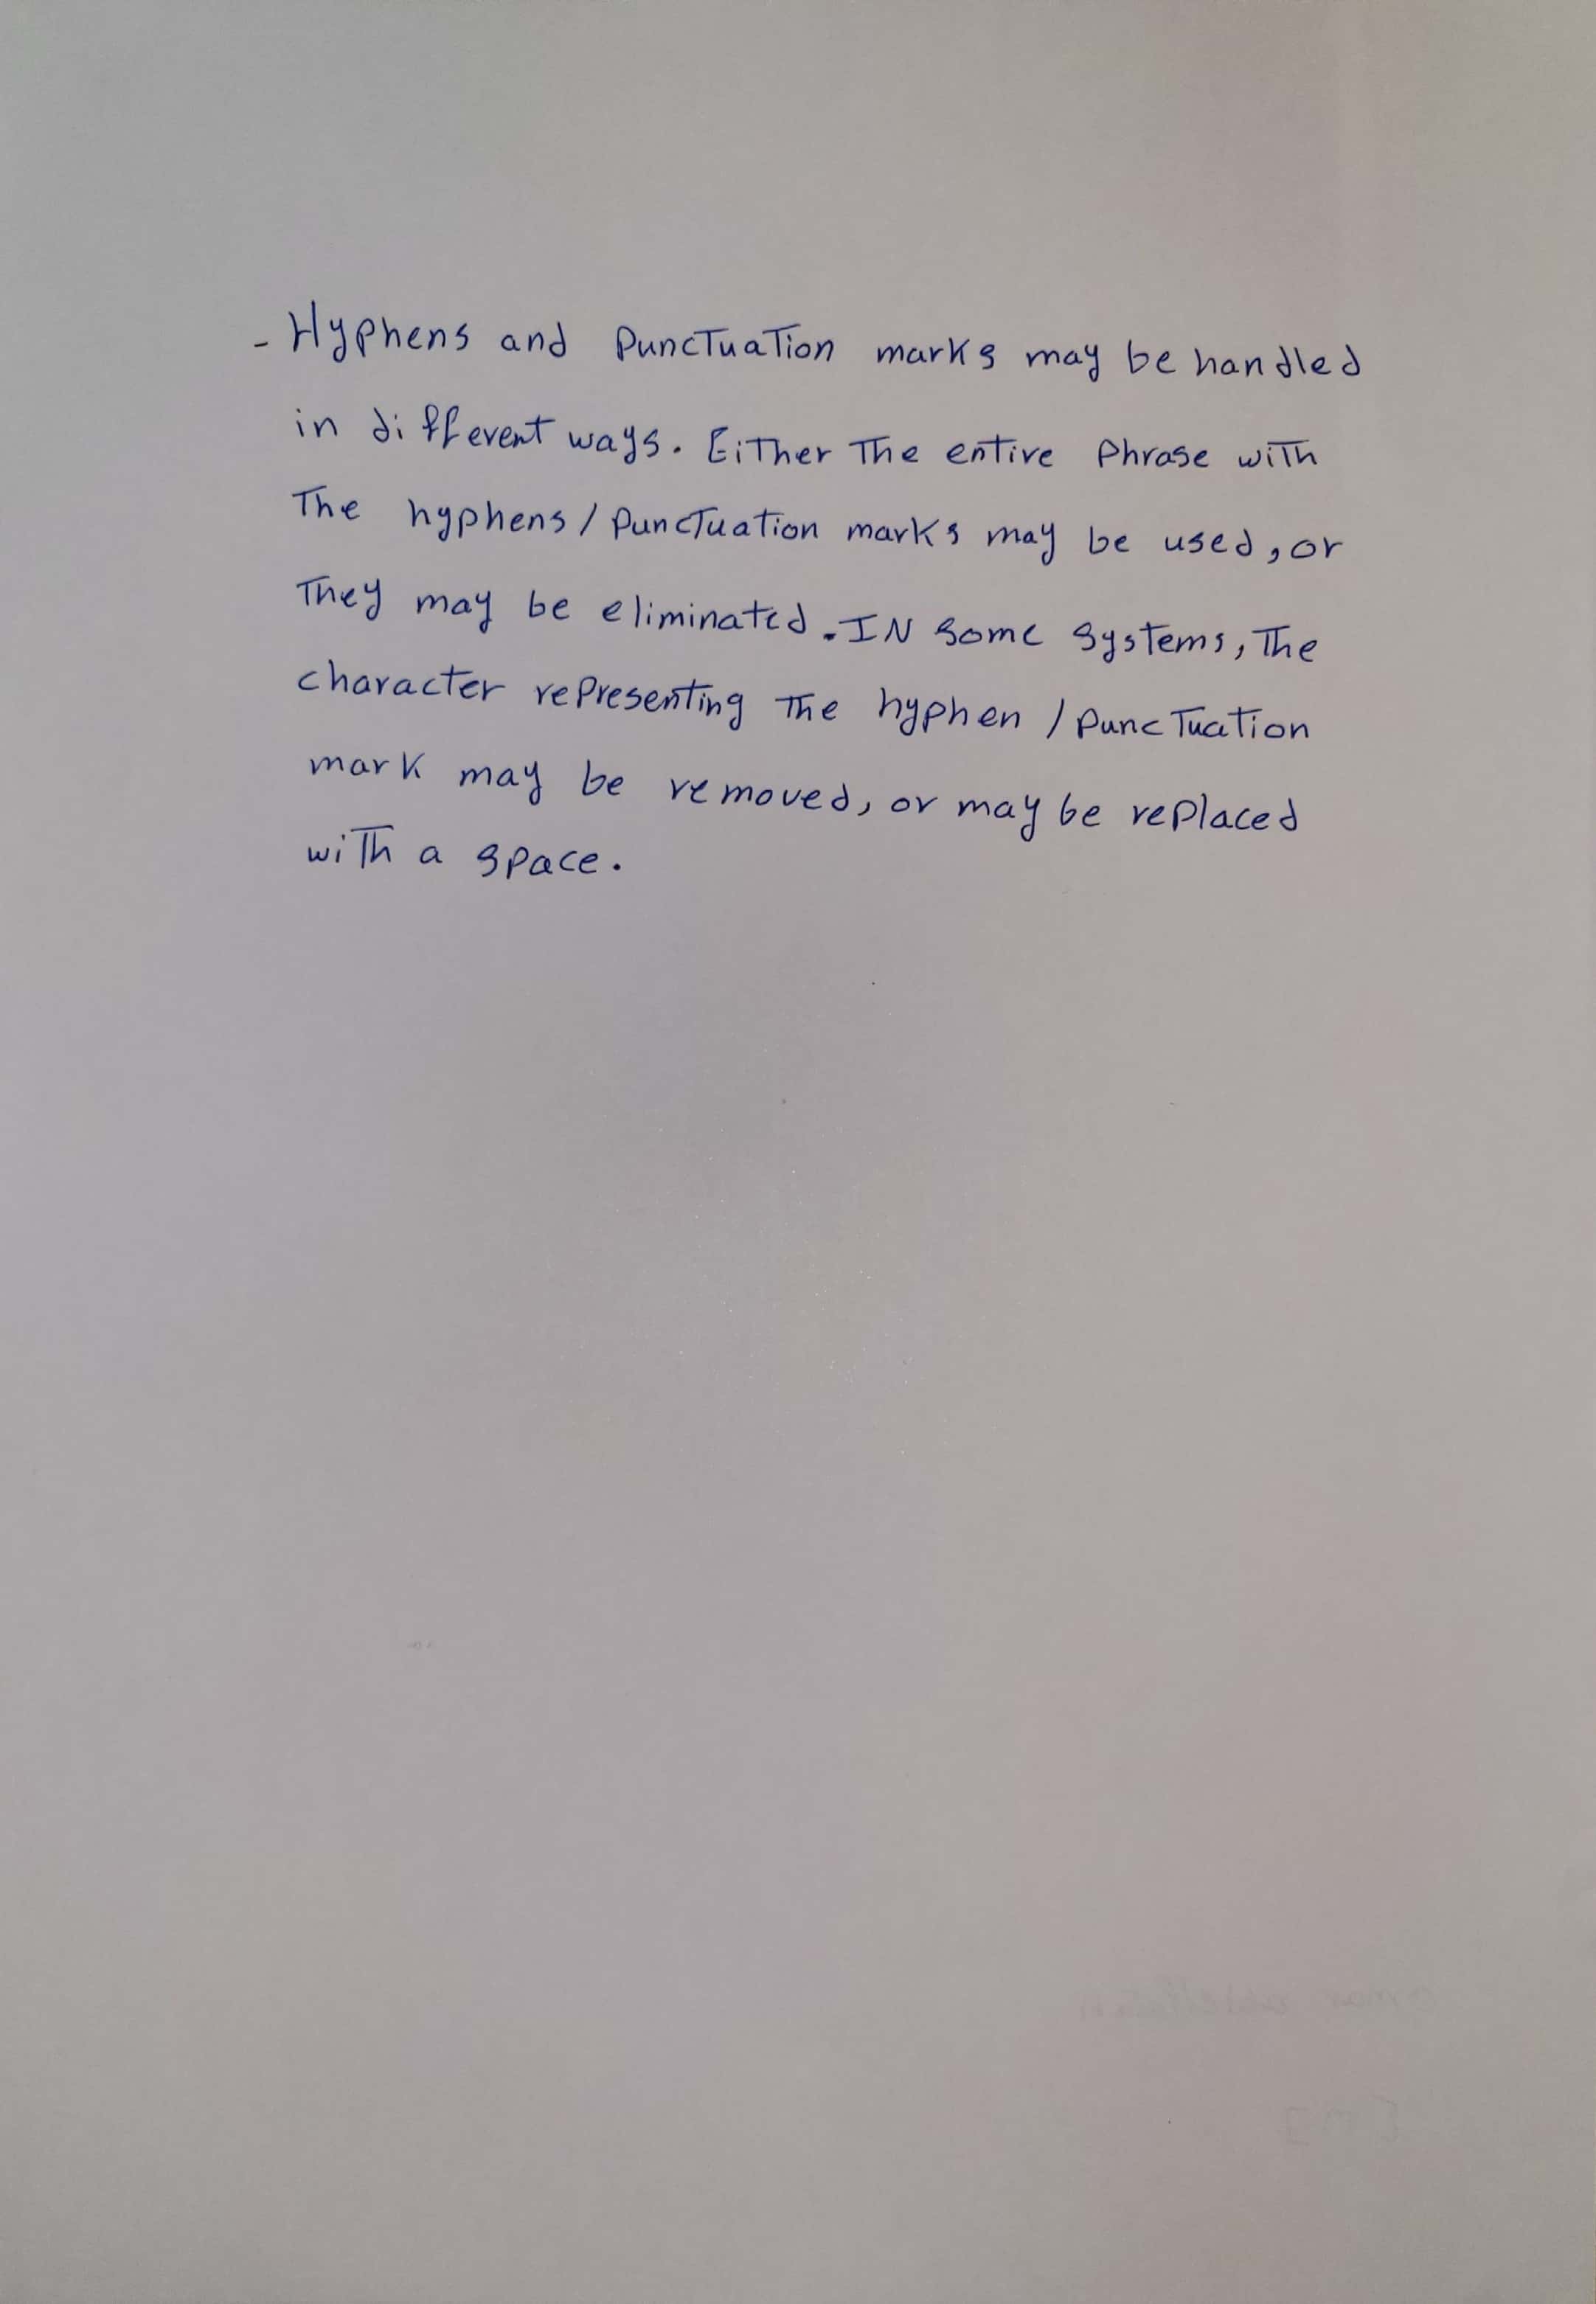 - Hyphens and punctuation marks may be handled
in different ways. Either the entire phrase with
the hyphens / punctuation marks may be used, or
they may be eliminated. IN some systems, the
character representing the hyphen / punctuation
mark may be removed, or may be replaced
with a space.